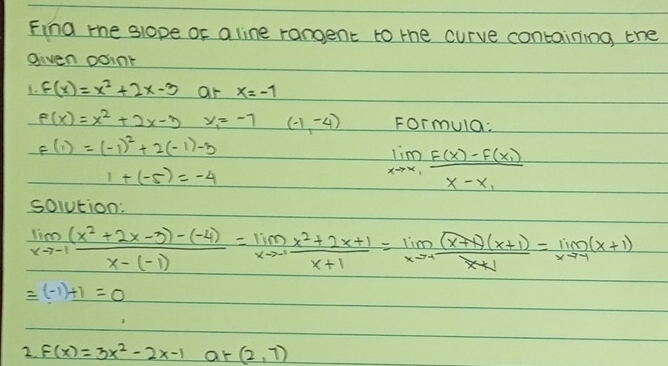 Find the slope of a line tangent to the curve containing the
given point
1. F(x) = x² + 2x - 3 at x = -1
F(x) = x² + 2x - 3 x₁ = -1 (-1, -4) Formula:
F(1) = (-1)² + 2(-1) - 3 lim x→x₁ F(x) - F(x₁) / x - x₁
1 + (-5) = -4
Solution:
lim x→-1 (x² + 2x - 3) - (-4) / x - (-1) = lim x→-1 x² + 2x + 1 / x + 1 = lim x→-1 (x+1)(x+1) / x+1 = lim x→-1 (x+1)
= (-1)+1 = 0
2. F(x) = 3x² - 2x - 1 at (2, 7)